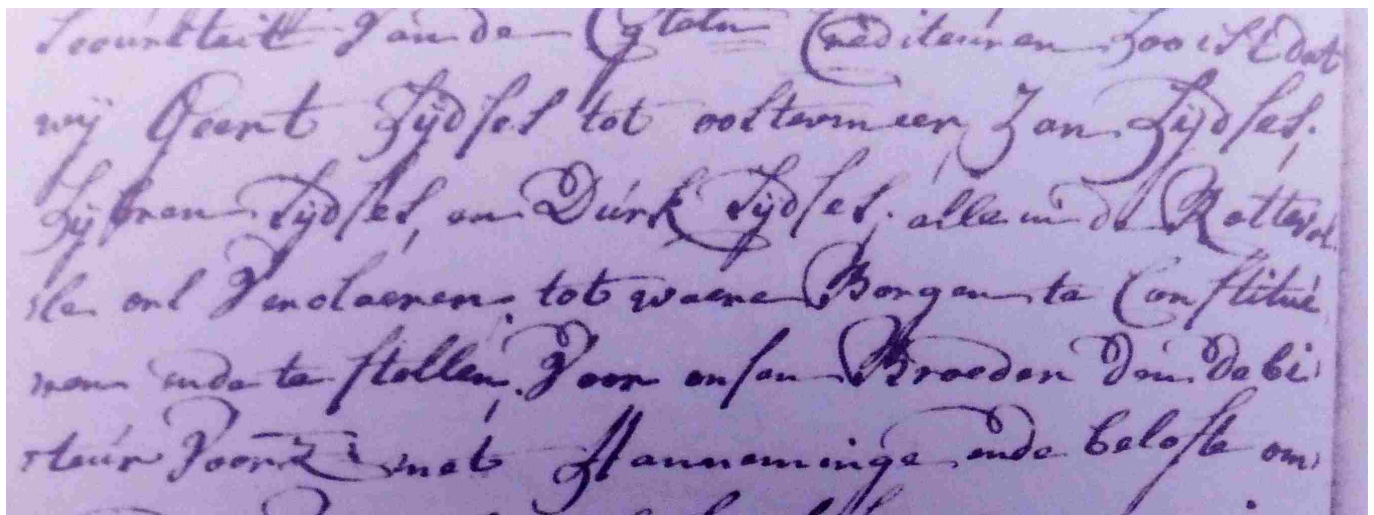 Securiteit Van de Gem. Crediteuren Zoo ist dat
wij Geert Sijdses tot oostermeer, Jan Sijdses,
Sijbren Sijdses, en Durk Sijdses, alle in de Rottevol
sle ons Verclaeren, tot waere Borgen te Constitue
ren ende te stellen, Voor onsen Broeder den debi
teur Voorz: met Aanneminge ende belofte om